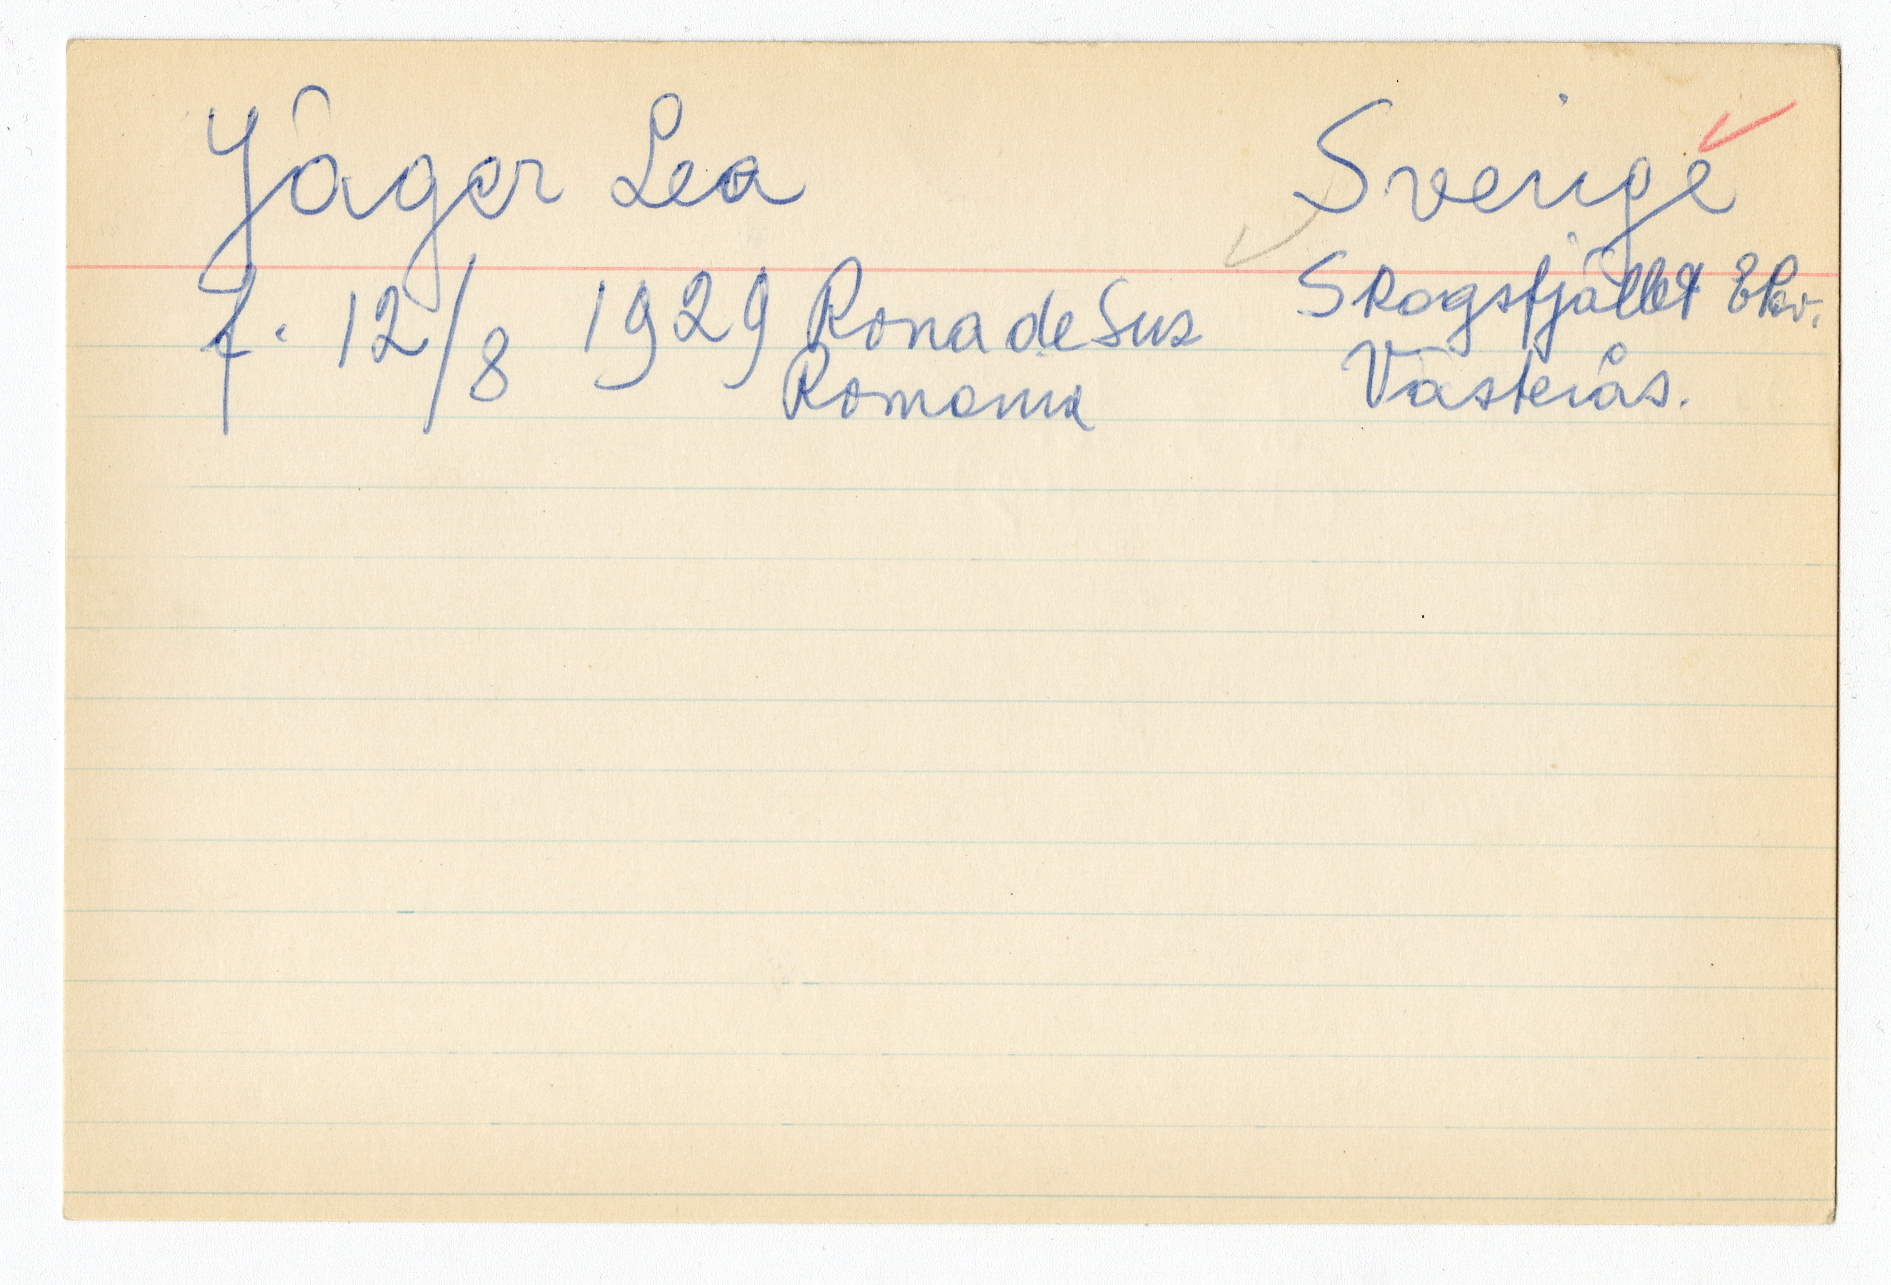 Jäger Lea
Sverige
f. 12/8 1929 Rona de Sus
Romania
Skogsfjället Ekv.
Västerås.